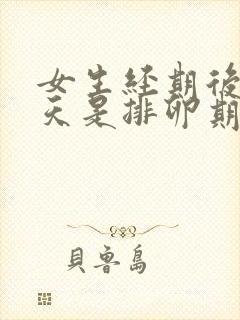 女生经期後
天是排卵期
貝魯島